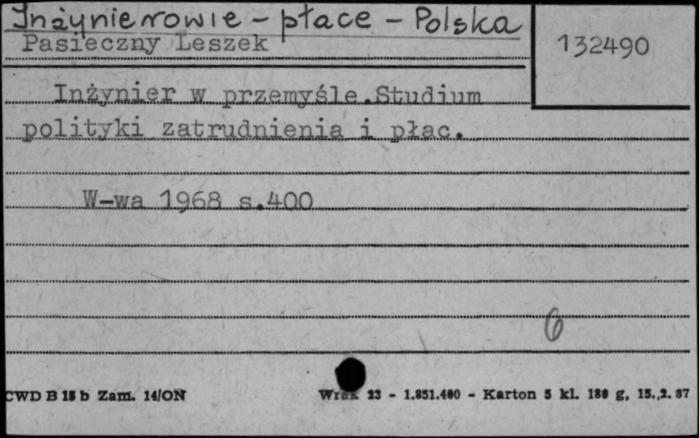 Inżynierowie - płace - Polska
Pasieczny Leszek
132490
Inżynier w przemyśle.Studium
polityki zatrudnienia i płac.
W-wa 1968 s.400
6
CWD B 15 b Zam. 14/ON
23 - 1.851.400 - Karton 5 kl. 180 g, 15.2.57